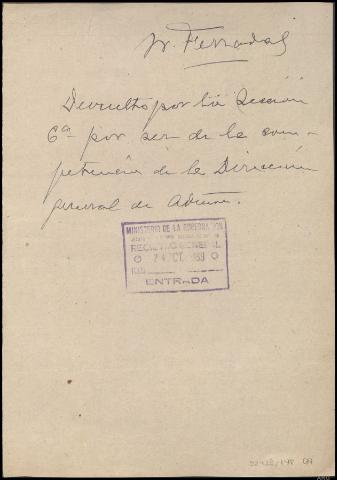 Sr. Ferradal
Devuelto por la Sección
6ª por ser de la com-
petencia de la Dirección
general de Admón.
MINISTERIO DE LA GOBERNACION
REGISTRO GENERAL
24 OCT. 1939
ENTRADA